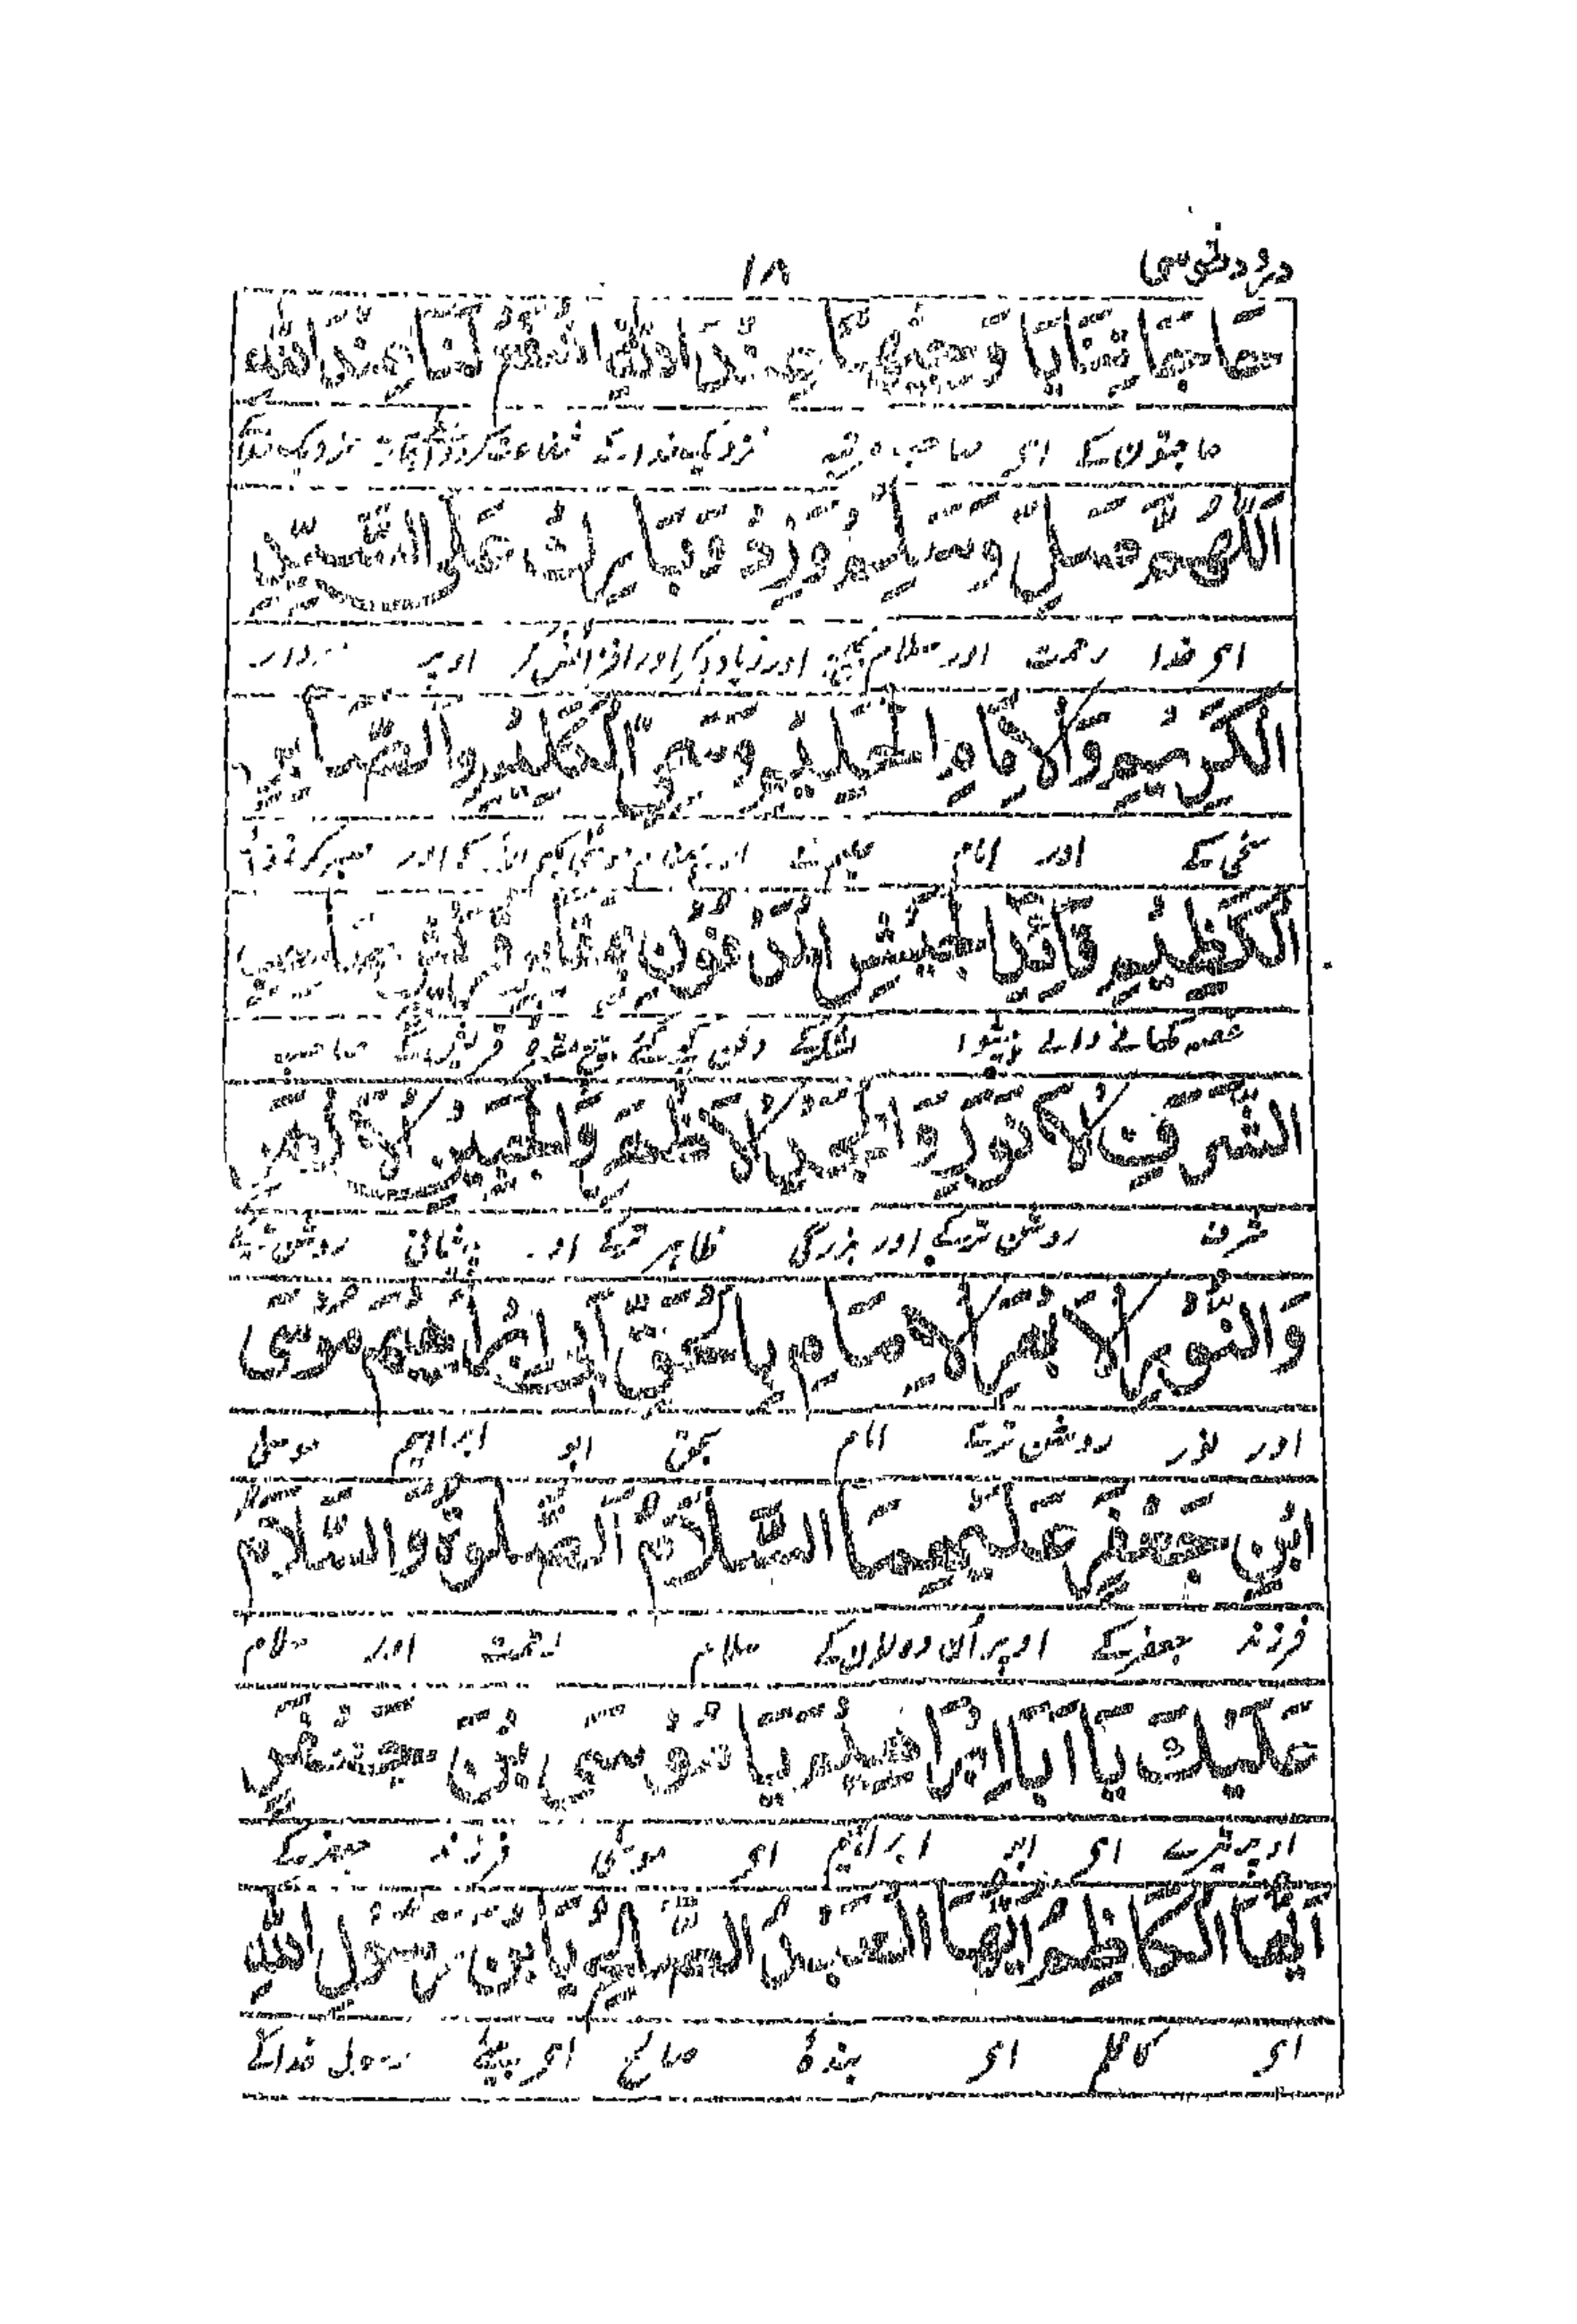 درود طوسی ١٨
حَاجَاتِنَا يَا وَجِيهًا عِنْدَ اللهِ اشْفَعْ لَنَا عِنْدَ اللهِ
حاجتوں کے ای صاحب مرتبہ نزدیک خدا کے شفاعت کر نزدیک خدا
اَللّٰهُمَّ صَلِّ وَسَلِّمْ وَزِدْ وَبَارِكْ عَلَى السَّيِّدِ
ای خدا رحمت اور سلام بھیج اور زیادہ کر اور افزائش کر اوپر سردار
الْكَرِيْمِ وَالْاِمَامِ الْحَلِيْمِ وَسَمِيِّ الْكَلِيْمِ وَالصَّابِرِ
سخی کے اور امام حلیم کے اور صبر کرنے والے
الْكَظِيْمِ قَائِدِ الْجَيْشِ الْمَدْفُوْنِ بِمَقَابِرِ قُرَيْشٍ صَاحِبِ
غصہ کھانے والے پیشوا لشکر کے دفن کیے گئے قریش کے صاحب
الشَّرَفِ الْاَنْوَرِ وَالْمَجْدِ الْاَظْهَرِ وَالْجَبِيْنِ الْاَزْهَرِ
شرف روشن تر کے اور بزرگی ظاہر تر کے اور پیشانی روشن تر کے
وَالنُّوْرِ الْاَبْهَرِ الْاِمَامِ بِالْحَقِّ اَبِيْ اِبْرَاهِيْمَ مُوْسَى
اور نور روشن تر کے امام بحق ابو ابراہیم موسی
ابْنِ جَعْفَرٍ عَلَيْهِمَا السَّلَامُ اَلصَّلٰوةُ وَالسَّلَامُ
فرزند جعفر کے اوپر ان دونوں کے سلام رحمت اور سلام
عَلَيْكَ يَا اَبَا اِبْرَاهِيْمَ يَا مُوْسَى بْنَ جَعْفَرٍ
اوپر تیرے ای ابو ابراہیم ای موسی فرزند جعفر کے
اَيُّهَا الْكَاظِمُ اَيُّهَا الْعَبْدُ الصَّالِحُ يَا بْنَ رَسُوْلِ اللهِ
ای کاظم ای بندہ صالح ای بیٹے رسول خدا کے